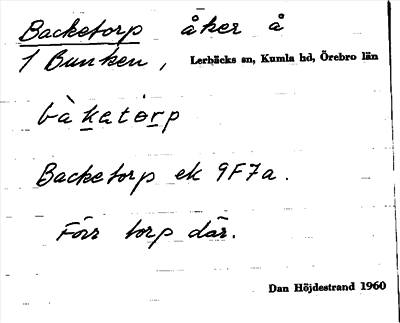 Backetorp åker å
1 Bunken, Lerbäcks sn, Kumla hd, Örebro län
bàketòrp
Backetorp ek 9F7a.
Förr torp där.
Dan Höjdestrand 1960